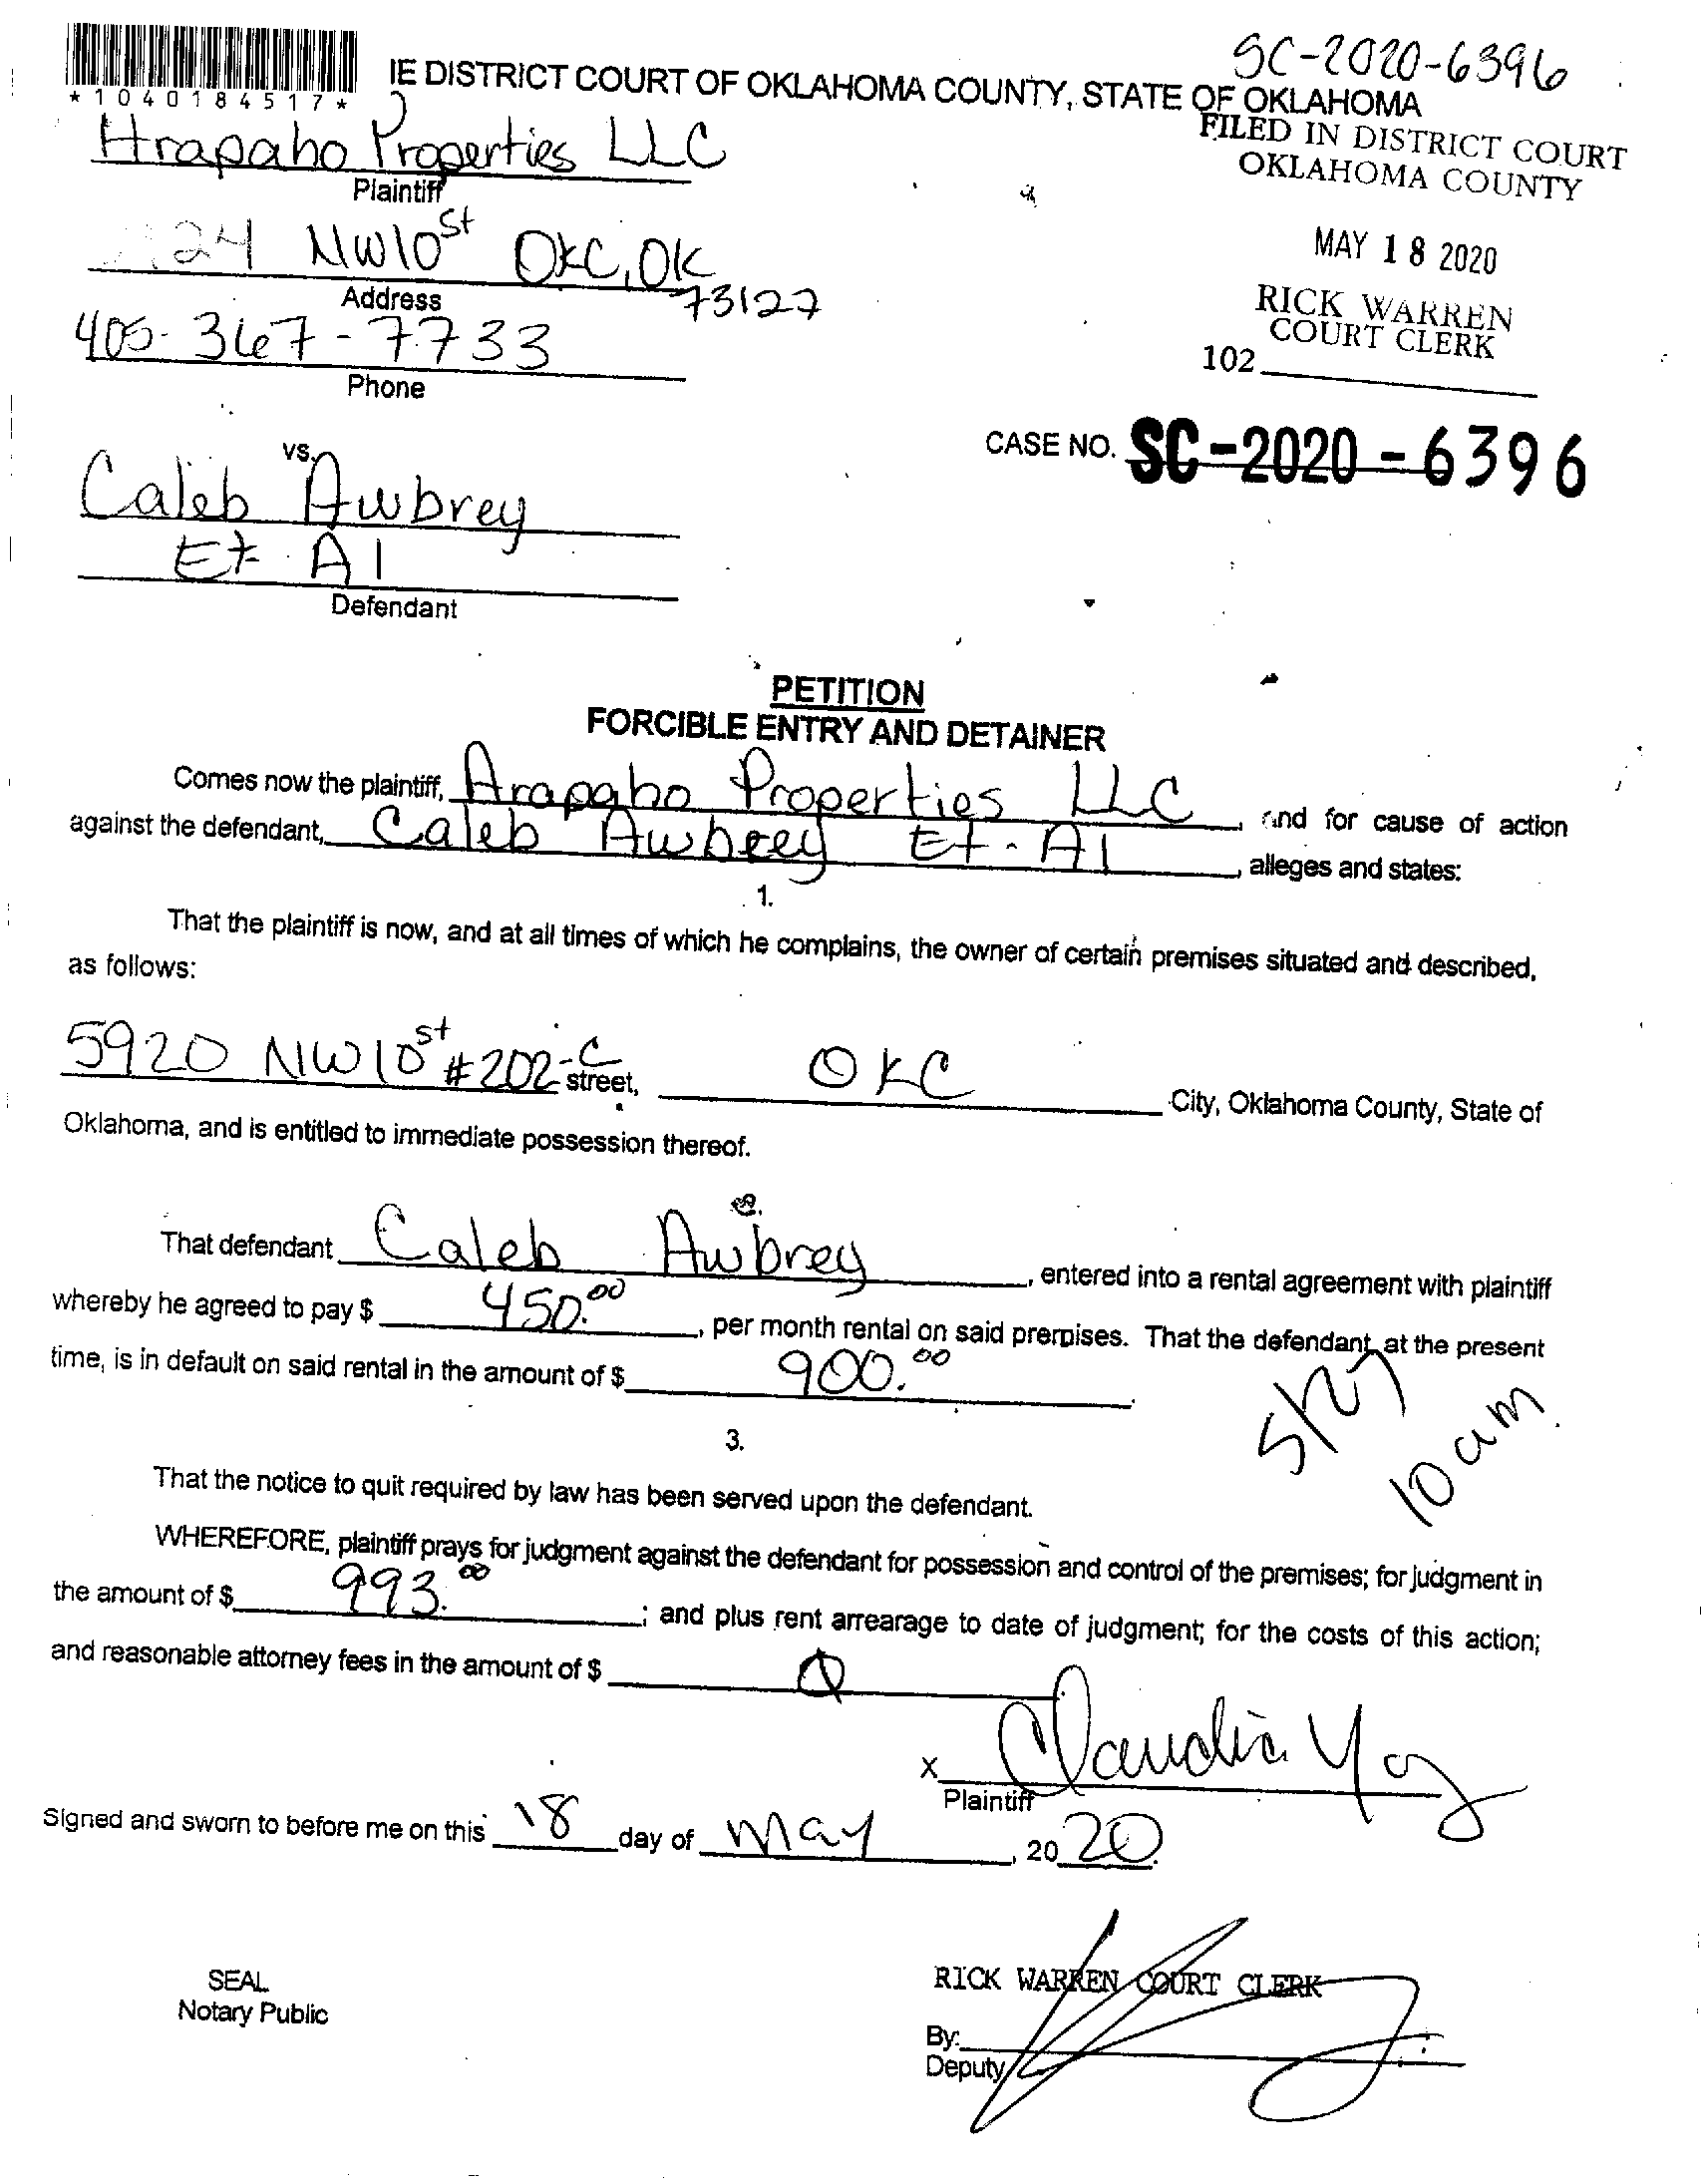 SC-2020-6396
IE DISTRICT COURT OF OKLAHOMA COUNTY, STATE OF OKLAHOMA
*1040184517*
FILED IN DISTRICT COURT
OKLAHOMA COUNTY
Arapaho Properties LLC
Plaintiff
24 NW10st OKC, OK
73127
Address
MAY 18 2020
RICK WARREN
COURT CLERK
102
405-367-7733
Phone
vs.
CASE NO. SC-2020-6396
Caleb Awbrey
Et. Al
Defendant
PETITION
FORCIBLE ENTRY AND DETAINER
Comes now the plaintiff, Arapaho Properties LLC, and for cause of action
against the defendant, Caleb Awbrey Et. Al, alleges and states:
1.
That the plaintiff is now, and at all times of which he complains, the owner of certain premises situated and described,
as follows:
5920 NW10st #202-C street, OKC City, Oklahoma County, State of
Oklahoma, and is entitled to immediate possession thereof.
That defendant Caleb Awbrey, entered into a rental agreement with plaintiff
whereby he agreed to pay $ 450.00, per month rental on said premises. That the defendant, at the present
time, is in default on said rental in the amount of $ 900.00.
5/27
10am.
3.
That the notice to quit required by law has been served upon the defendant.
WHEREFORE, plaintiff prays for judgment against the defendant for possession and control of the premises; for judgment in
the amount of $ 993.00; and plus rent arrearage to date of judgment; for the costs of this action;
and reasonable attorney fees in the amount of $ 0
x Claudia
Plaintiff
Signed and sworn to before me on this 18 day of May, 20 20.
SEAL
Notary Public
RICK WARREN COURT CLERK
By:
Deputy